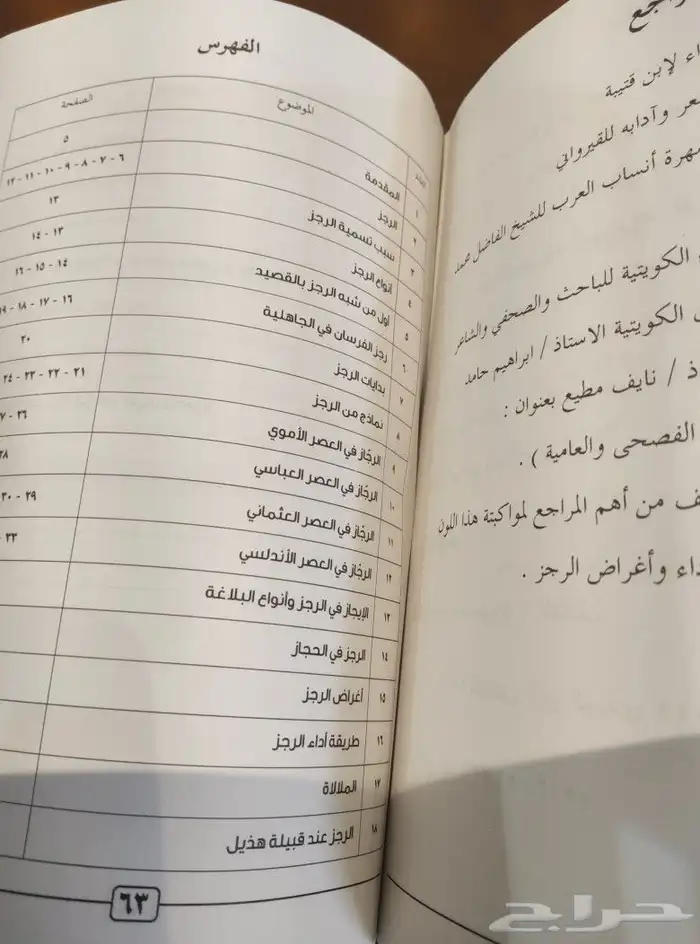 اء لإبن قتيبة
عر وآدابه للقيرواني
أنساب العرب للشيخ الفاضل محمد
الكويتية للباحث والصحفي والشاعر
الكويتية الاستاذ / ابراهيم حامد
/ نايف مطيع بعنوان :
الفصحى والعامية ) .
من أهم المراجع لمواكبتة هذا اللون
وأغراض الرجز .
الفهرس
الموضوع الصفحة
١ المقدمة ٥
٢ الرجز ٦ - ٧ - ٨ - ٩ - ١٠ - ١١ - ١٢
٣ سبب تسمية الرجز ١٣
٤ أنواع الرجز ١٣ - ١٤
٥ أول من شبه الرجز بالقصيد ١٤ - ١٥ - ١٦
٦ رجز الفرسان في الجاهلية ١٦ - ١٧ - ١٨ - ١٩
٧ بدايات الرجز ٢٠
٨ نماذج من الرجز ٢١ - ٢٢ - ٢٣ - ٢٤
٩ الرجّاز في العصر الأموي ٢٦
١٠ الرجّاز في العصر العباسي
١١ الرجّاز في العصر العثماني ٢٩ - ٣٠
١٢ الرجّاز في العصر الأندلسي
١٣ الإيجاز في الرجز وأنواع البلاغة
١٤ الرجز في الحجاز
١٥ أغراض الرجز
١٦ طريقة أداء الرجز
١٧ الملالاة
١٨ الرجز عند قبيلة هذيل
٦٣
حراج